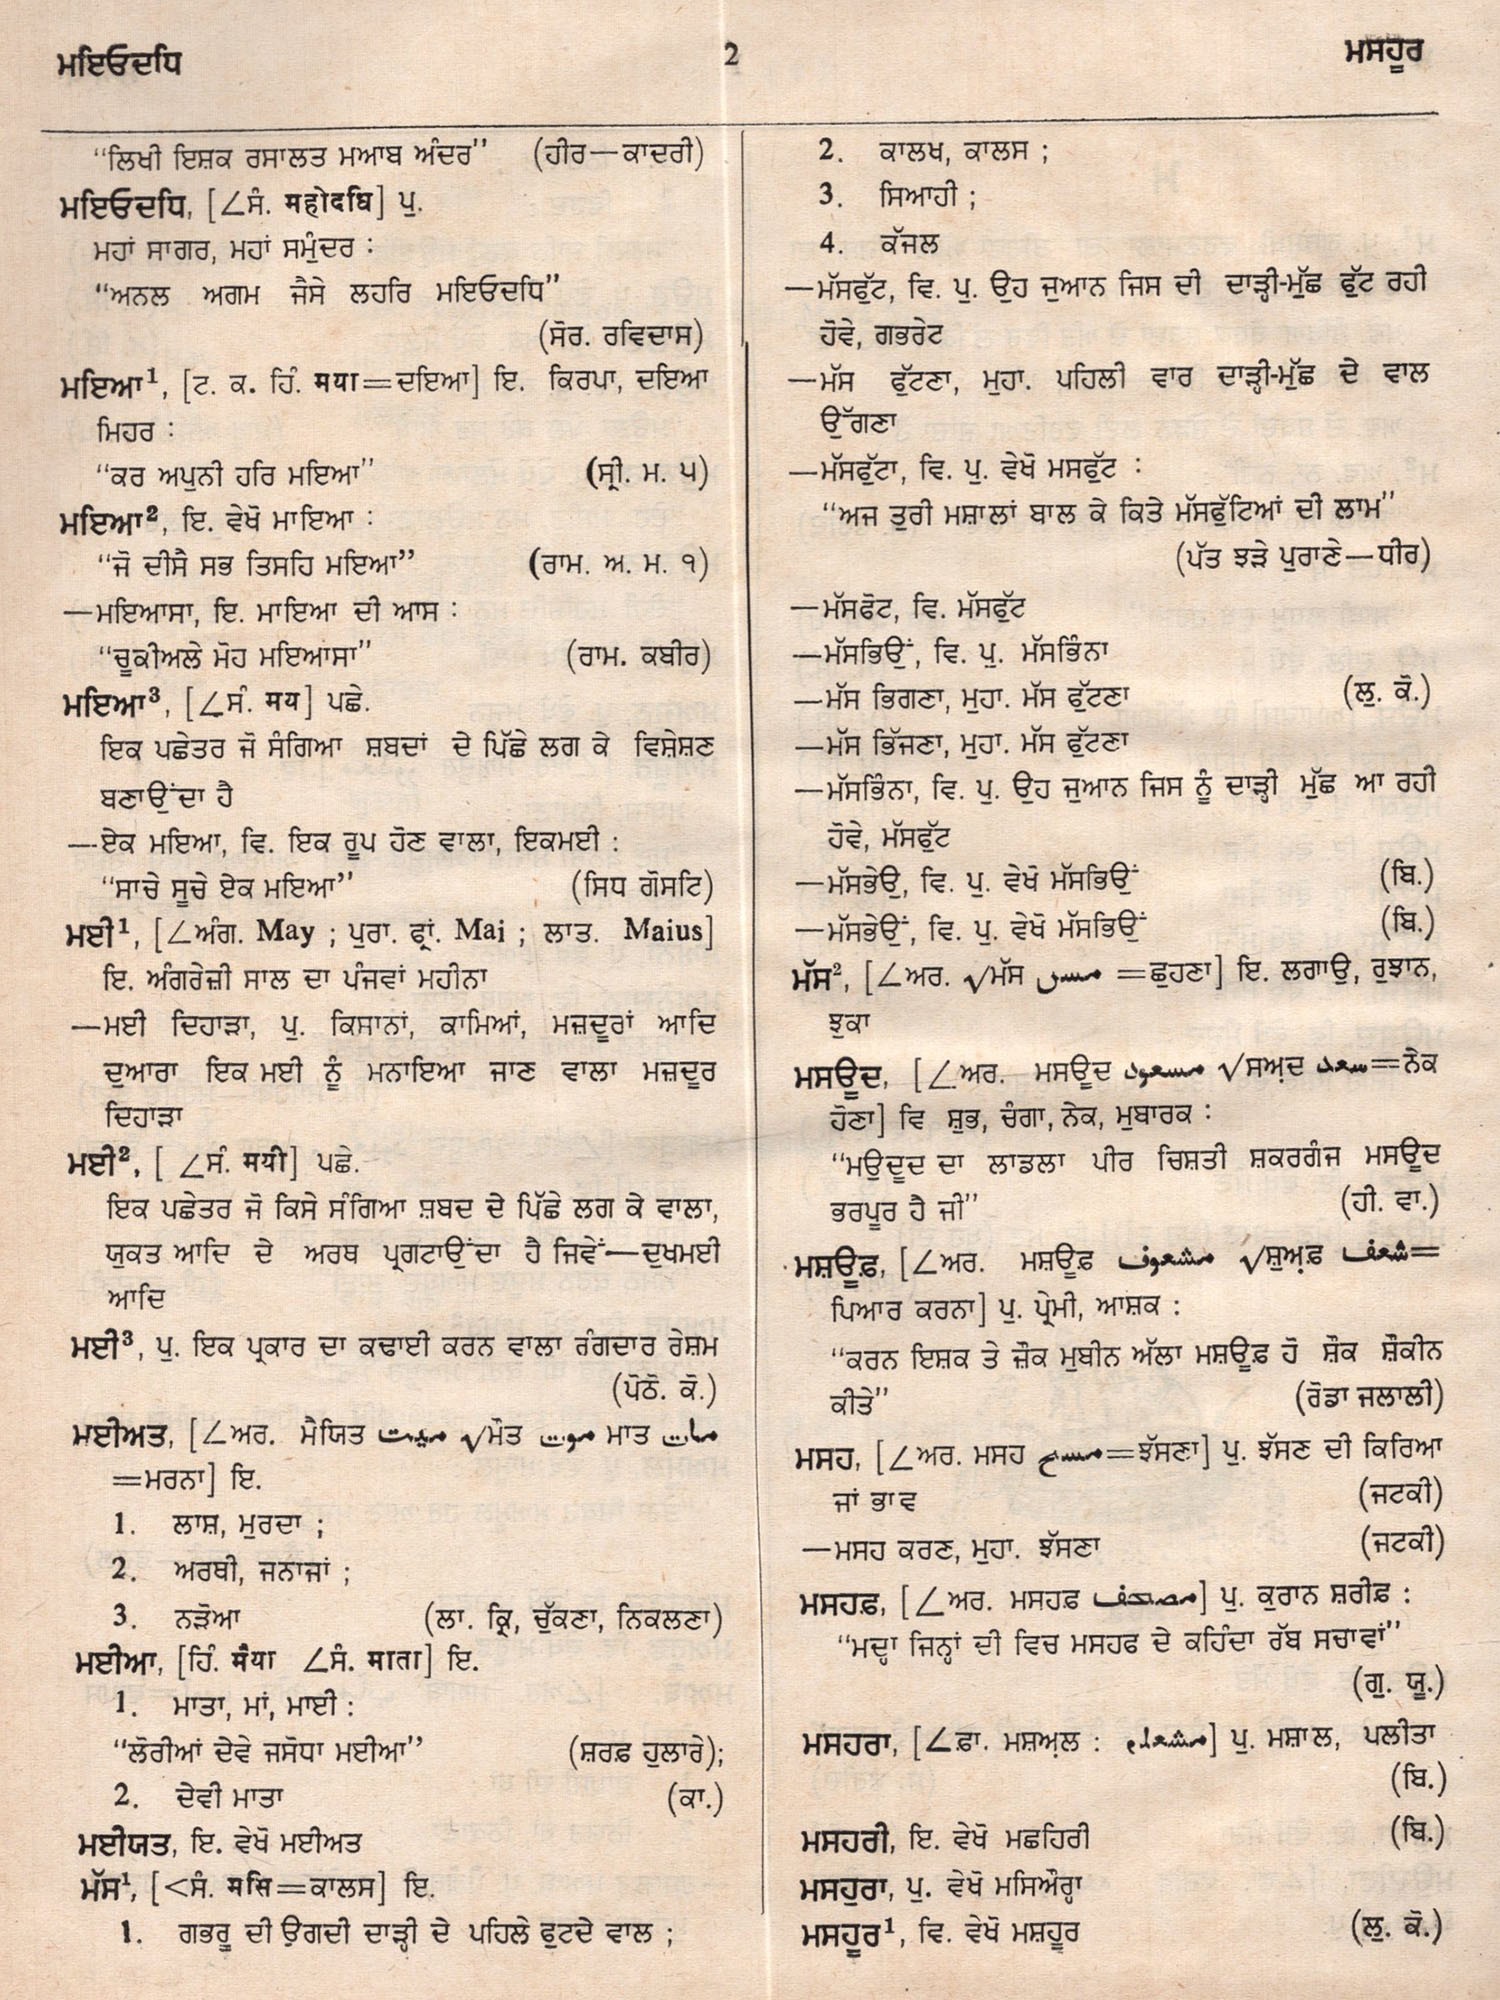 ਮਇਓਦਧਿ 2 ਮਸਹੂਰ
“ਲਿਖੀ ਇਸ਼ਕ ਰਸਾਲਤ ਮਆਬ ਅੰਦਰ” (ਹੀਰ—ਕਾਦਰੀ)
ਮਇਓਦਧਿ, [∠ਸੰ. महोदधि] ਪੁ.
ਮਹਾਂ ਸਾਗਰ, ਮਹਾਂ ਸਮੁੰਦਰ :
“ਅਨਲ ਅਗਮ ਜੈਸੇ ਲਹਰਿ ਮਇਓਦਧਿ”
(ਸੋਰ. ਰਵਿਦਾਸ)
ਮਇਆ¹, [ਟ. ਕ. ਹਿੰ. मया=ਦਇਆ] ਇ. ਕਿਰਪਾ, ਦਇਆ
ਮਿਹਰ :
“ਕਰ ਅਪੁਨੀ ਹਰਿ ਮਇਆ” (ਸ੍ਰੀ. ਮ. ੫)
ਮਇਆ², ਇ. ਵੇਖੋ ਮਾਇਆ :
“ਜੋ ਦੀਸੈ ਸਭ ਤਿਸਹਿ ਮਇਆ” (ਰਾਮ. ਅ. ਮ. ੧)
—ਮਇਆਸਾ, ਇ. ਮਾਇਆ ਦੀ ਆਸ :
“ਚੂਕੀਅਲੇ ਮੋਹ ਮਇਆਸਾ” (ਰਾਮ. ਕਬੀਰ)
ਮਇਆ³, [∠ਸੰ. मय] ਪਛੇ.
ਇਕ ਪਛੇਤਰ ਜੋ ਸੰਗਿਆ ਸ਼ਬਦਾਂ ਦੇ ਪਿੱਛੇ ਲਗ ਕੇ ਵਿਸ਼ੇਸ਼ਣ
ਬਣਾਉਂਦਾ ਹੈ
—ਏਕ ਮਇਆ, ਵਿ. ਇਕ ਰੂਪ ਹੋਣ ਵਾਲਾ, ਇਕਮਈ :
“ਸਾਚੇ ਸੂਚੇ ਏਕ ਮਇਆ” (ਸਿਧ ਗੋਸਟਿ)
ਮਈ¹, [∠ਅੰਗ. May ; ਪੁਰਾ. ਫ੍ਰਾਂ. Mai ; ਲਾਤ. Maius]
ਇ. ਅੰਗਰੇਜ਼ੀ ਸਾਲ ਦਾ ਪੰਜਵਾਂ ਮਹੀਨਾ
—ਮਈ ਦਿਹਾੜਾ, ਪੁ. ਕਿਸਾਨਾਂ, ਕਾਮਿਆਂ, ਮਜ਼ਦੂਰਾਂ ਆਦਿ
ਦੁਆਰਾ ਇਕ ਮਈ ਨੂੰ ਮਨਾਇਆ ਜਾਣ ਵਾਲਾ ਮਜ਼ਦੂਰ
ਦਿਹਾੜਾ
ਮਈ², [ ∠ਸੰ. मयी] ਪਛੇ.
ਇਕ ਪਛੇਤਰ ਜੋ ਕਿਸੇ ਸੰਗਿਆ ਸ਼ਬਦ ਦੇ ਪਿੱਛੇ ਲਗ ਕੇ ਵਾਲਾ,
ਯੁਕਤ ਆਦਿ ਦੇ ਅਰਥ ਪ੍ਰਗਟਾਉਂਦਾ ਹੈ ਜਿਵੇਂ—ਦੁਖਮਈ
ਆਦਿ
ਮਈ³, ਪੁ. ਇਕ ਪ੍ਰਕਾਰ ਦਾ ਕਢਾਈ ਕਰਨ ਵਾਲਾ ਰੰਗਦਾਰ ਰੇਸ਼ਮ
(ਪੋਠੋ. ਕੋ.)
ਮਈਅਤ, [∠ਅਰ. ਮੈਯਿਤ میت √ਮੌਤ موت ਮਾਤ مات
=ਮਰਨਾ] ਇ.
1. ਲਾਸ਼, ਮੁਰਦਾ ;
2. ਅਰਥੀ, ਜਨਾਜਾਂ ;
3. ਨੜੋਆ (ਲਾ. ਕ੍ਰਿ, ਚੁੱਕਣਾ, ਨਿਕਲਣਾ)
ਮਈਆ, [ਹਿੰ. मैया ∠ਸੰ. माता] ਇ.
1. ਮਾਤਾ, ਮਾਂ, ਮਾਈ :
“ਲੋਰੀਆਂ ਦੇਵੇ ਜਸੋਧਾ ਮਈਆ” (ਸ਼ਰਫ਼ ਹੁਲਾਰੇ);
2. ਦੇਵੀ ਮਾਤਾ (ਕਾ.)
ਮਈਯਤ, ਇ. ਵੇਖੋ ਮਈਅਤ
ਮੱਸ¹, [<ਸੰ. मसि=ਕਾਲਸ] ਇ.
1. ਗਭਰੂ ਦੀ ਉਗਦੀ ਦਾੜ੍ਹੀ ਦੇ ਪਹਿਲੇ ਫੁਟਦੇ ਵਾਲ ;
2. ਕਾਲਖ, ਕਾਲਸ ;
3. ਸਿਆਹੀ ;
4. ਕੱਜਲ
—ਮੱਸਫੁੱਟ, ਵਿ. ਪੁ. ਉਹ ਜੁਆਨ ਜਿਸ ਦੀ ਦਾੜ੍ਹੀ-ਮੁੱਛ ਫੁੱਟ ਰਹੀ
ਹੋਵੇ, ਗਭਰੇਟ
—ਮੱਸ ਫੁੱਟਣਾ, ਮੁਹਾ. ਪਹਿਲੀ ਵਾਰ ਦਾੜ੍ਹੀ-ਮੁੱਛ ਦੇ ਵਾਲ
ਉੱਗਣਾ
—ਮੱਸਫੁੱਟਾ, ਵਿ. ਪੁ. ਵੇਖੋ ਮਸਫੁੱਟ :
“ਅਜ ਤੁਰੀ ਮਸ਼ਾਲਾਂ ਬਾਲ ਕੇ ਕਿਤੇ ਮੱਸਫੁੱਟਿਆਂ ਦੀ ਲਾਮ”
(ਪੱਤ ਝੜੇ ਪੁਰਾਣੇ—ਧੀਰ)
—ਮੱਸਫੋਟ, ਵਿ. ਮੱਸਫੁੱਟ
—ਮੱਸਭਿਉਂ, ਵਿ. ਪੁ. ਮੱਸਭਿੰਨਾ
—ਮੱਸ ਭਿਗਣਾ, ਮੁਹਾ. ਮੱਸ ਫੁੱਟਣਾ (ਲੁ. ਕੋ.)
—ਮੱਸ ਭਿੱਜਣਾ, ਮੁਹਾ. ਮੱਸ ਫੁੱਟਣਾ
—ਮੱਸਭਿੰਨਾ, ਵਿ. ਪੁ. ਉਹ ਜੁਆਨ ਜਿਸ ਨੂੰ ਦਾੜ੍ਹੀ ਮੁੱਛ ਆ ਰਹੀ
ਹੋਵੇ, ਮੱਸਫੁੱਟ
—ਮੱਸਭੇਉ, ਵਿ. ਪੁ. ਵੇਖੋ ਮੱਸਭਿਉਂ (ਬਿ.)
—ਮੱਸਭੇਉਂ, ਵਿ. ਪੁ. ਵੇਖੋ ਮੱਸਭਿਉਂ (ਬਿ.)
ਮੱਸ², [∠ਅਰ. √ਮੱਸ مسس =ਛੁਹਣਾ] ਇ. ਲਗਾਉ, ਰੁਝਾਨ,
ਝੁਕਾ
ਮਸਊਦ, [∠ਅਰ. ਮਸਊਦ مسعود √ਸਅ਼ਦ سعد=ਨੇਕ
ਹੋਣਾ] ਵਿ ਸ਼ੁਭ, ਚੰਗਾ, ਨੇਕ, ਮੁਬਾਰਕ :
“ਮਉਦੂਦ ਦਾ ਲਾਡਲਾ ਪੀਰ ਚਿਸ਼ਤੀ ਸ਼ਕਰਗੰਜ ਮਸਊਦ
ਭਰਪੂਰ ਹੈ ਜੀ” (ਹੀ. ਵਾ.)
ਮਸ਼ਊਫ਼, [∠ਅਰ. ਮਸ਼ਊਫ਼ مشعوف √ਸ਼ੁਅ਼ਫ਼ شعف=
ਪਿਆਰ ਕਰਨਾ] ਪੁ. ਪ੍ਰੇਮੀ, ਆਸ਼ਕ :
“ਕਰਨ ਇਸ਼ਕ ਤੇ ਜ਼ੌਕ ਮੁਬੀਨ ਅੱਲਾ ਮਸ਼ਊਫ਼ ਹੋ ਸ਼ੌਕ ਸ਼ੌਕੀਨ
ਕੀਤੇ” (ਰੋਡਾ ਜਲਾਲੀ)
ਮਸਹ, [∠ਅਰ. ਮਸਹ مسح=ਝੱਸਣਾ] ਪੁ. ਝੱਸਣ ਦੀ ਕਿਰਿਆ
ਜਾਂ ਭਾਵ (ਜਟਕੀ)
—ਮਸਹ ਕਰਣ, ਮੁਹਾ. ਝੱਸਣਾ (ਜਟਕੀ)
ਮਸਹਫ਼, [∠ਅਰ. ਮਸਹਫ਼ مصحف] ਪੁ. ਕੁਰਾਨ ਸ਼ਰੀਫ਼ :
“ਮਦ੍ਹਾ ਜਿਨ੍ਹਾਂ ਦੀ ਵਿਚ ਮਸਹਫ ਦੇ ਕਹਿੰਦਾ ਰੱਬ ਸਚਾਵਾਂ”
(ਗੁ. ਯੂ.)
ਮਸਹਰਾ, [∠ਫ਼ਾ. ਮਸ਼ਅ਼ਲ : مشعلہ] ਪੁ. ਮਸ਼ਾਲ, ਪਲੀਤਾ
(ਬਿ.)
ਮਸਹਰੀ, ਇ. ਵੇਖੋ ਮਛਹਿਰੀ (ਬਿ.)
ਮਸਹੁਰਾ, ਪੁ. ਵੇਖੋ ਮਸਿਔਰ੍ਹਾ
ਮਸਹੂਰ¹, ਵਿ. ਵੇਖੋ ਮਸ਼ਹੂਰ (ਲੁ. ਕੋ.)